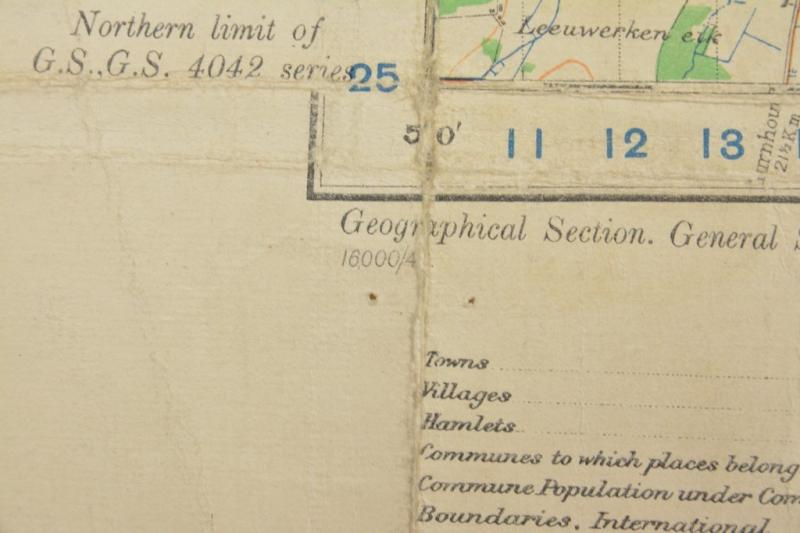 Northern limit of
G.S.,G.S. 4042 series
25
Leeuwerken
5 0'
11 12 13
21½ Km
Geographical Section. General
16000/4
Towns
Villages
Hamlets
Communes to which places belong
Commune Population under
Boundaries. International